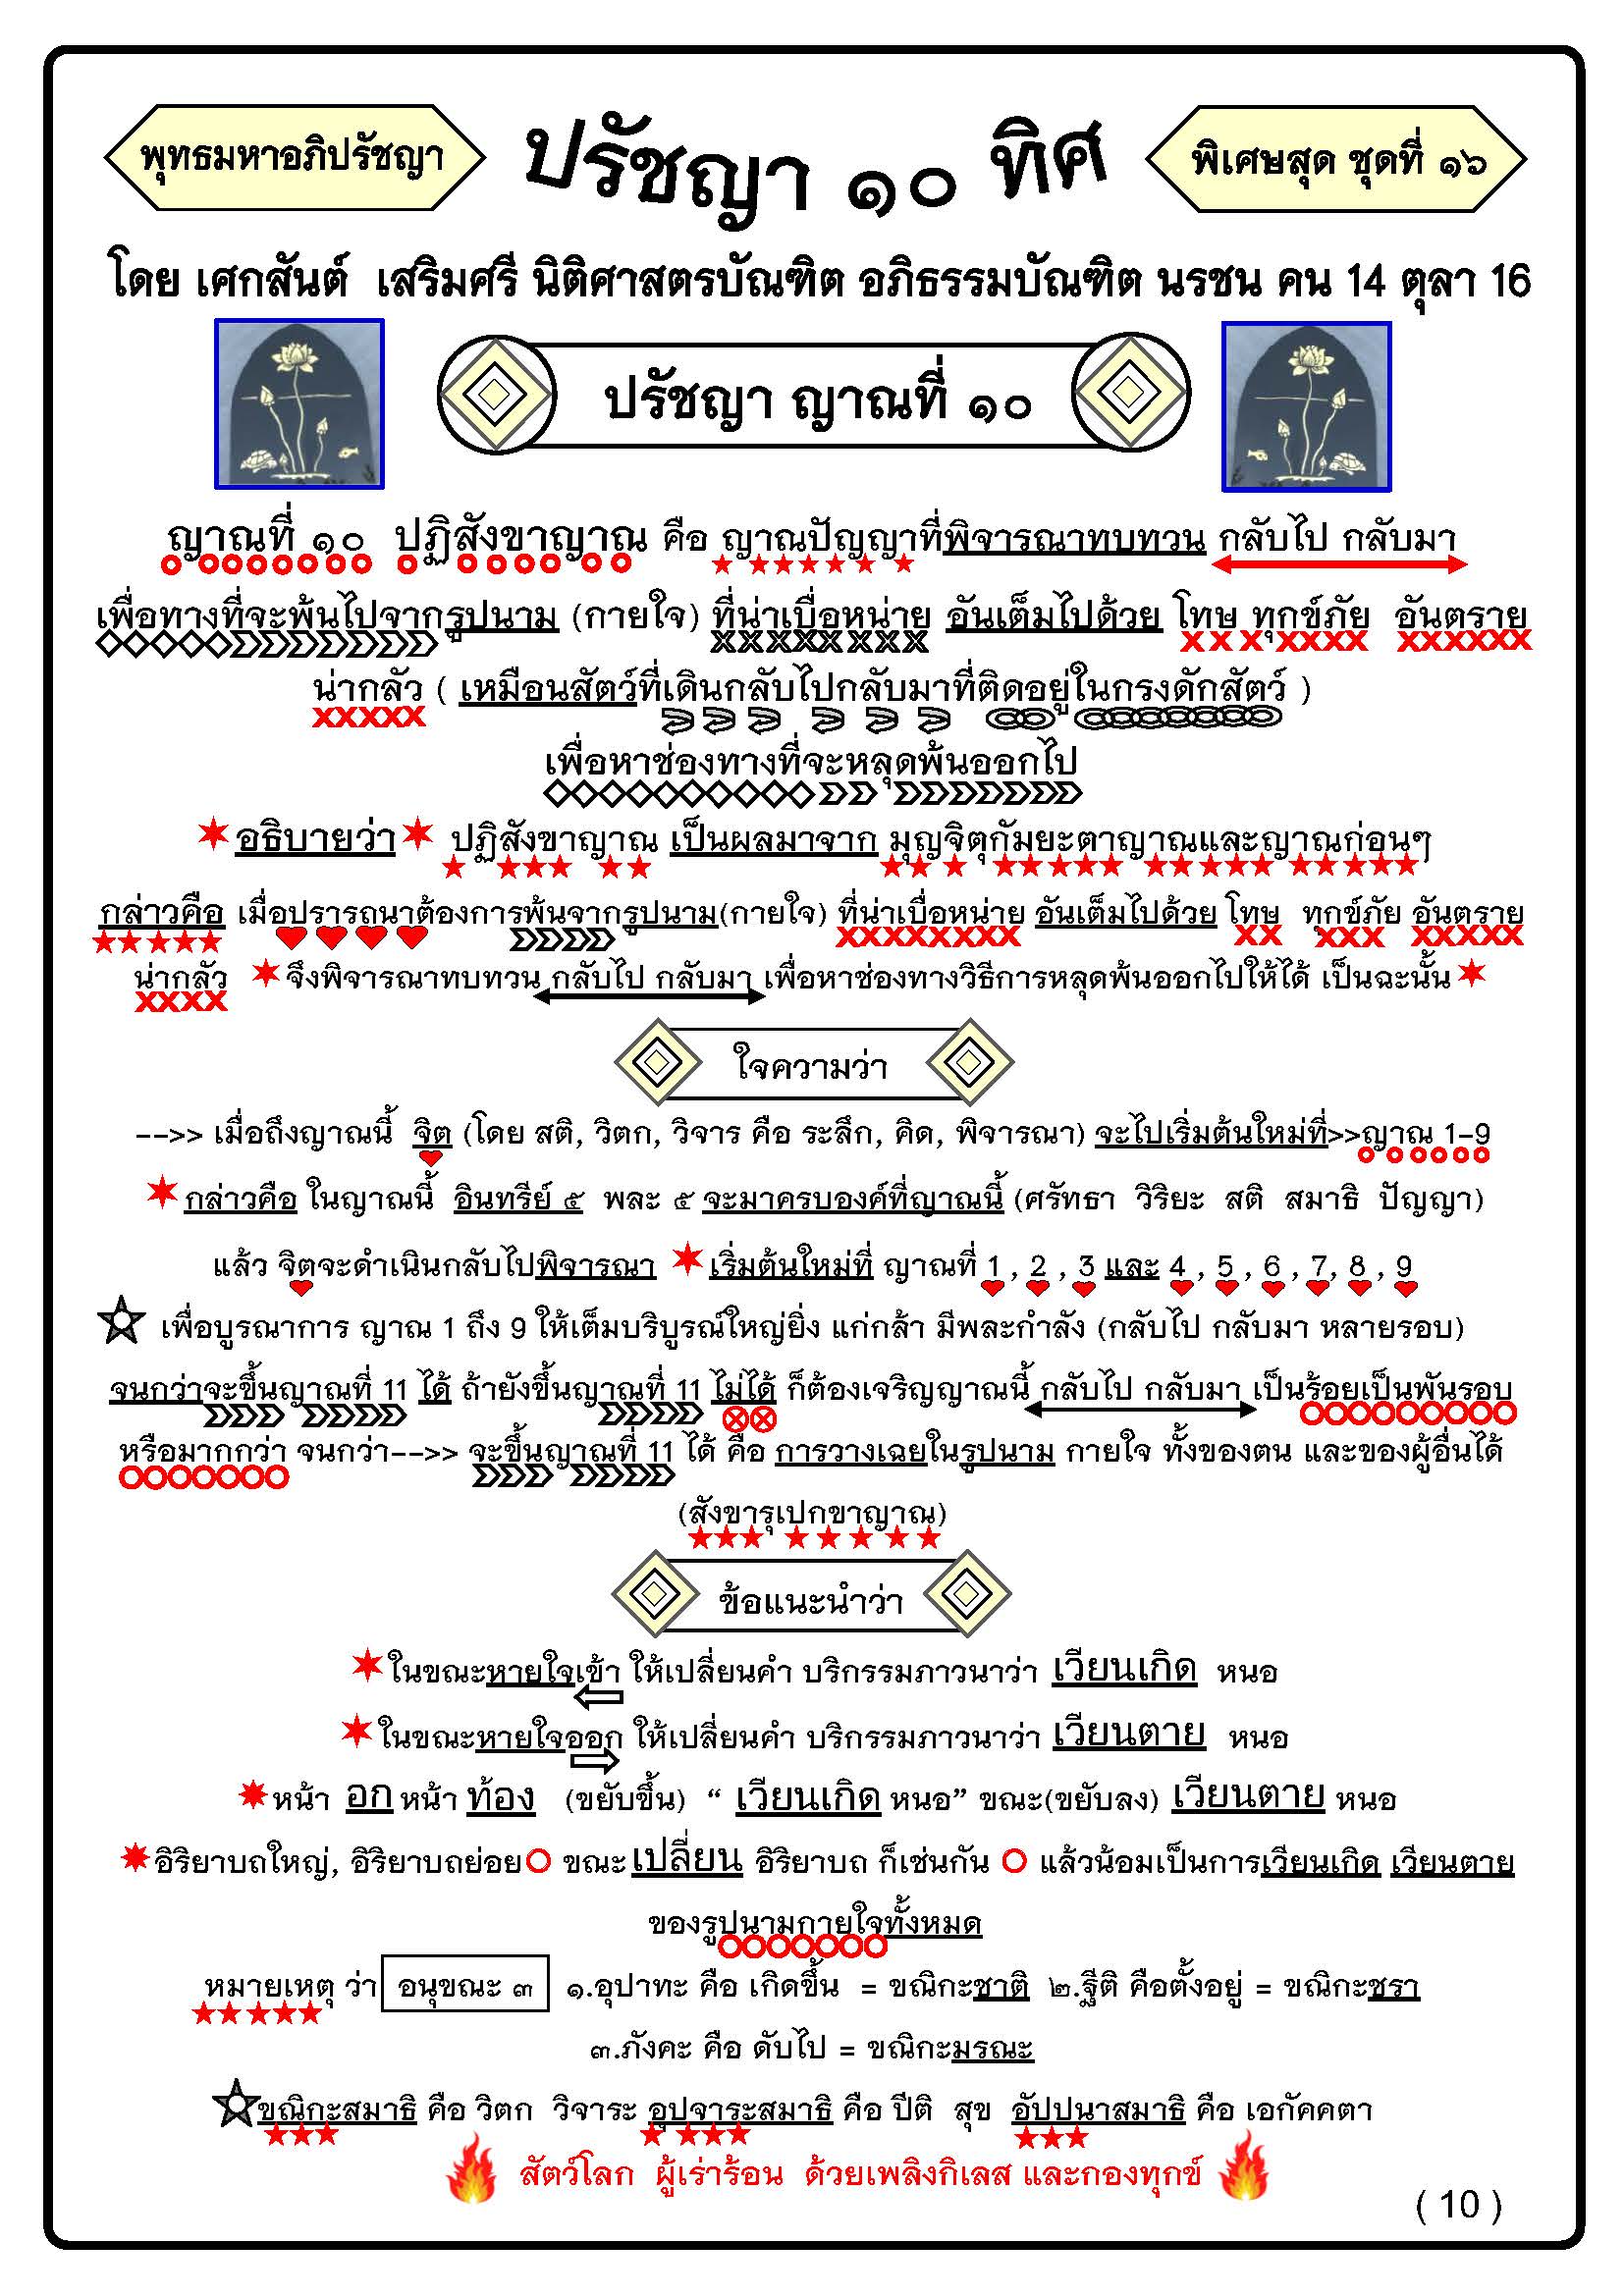 พุทธมหาอภิปรัชญา
ปรัชญา ๑๐ ทิศ
พิเศษสุด ชุดที่ ๑๖
โดย เศกสันต์ เสริมศรี นิติศาสตรบัณฑิต อภิธรรมบัณฑิต นรชน คน 14 ตุลา 16
ปรัชญา ญาณที่ ๑๐
ญาณที่ ๑๐ ปฏิสังขาญาณ คือ ญาณปัญญาที่พิจารณาทบทวน กลับไป กลับมา
เพื่อทางที่จะพ้นไปจากรูปนาม (กายใจ) ที่น่าเบื่อหน่าย อันเต็มไปด้วย โทษ ทุกข์ภัย อันตราย
น่ากลัว ( เหมือนสัตว์ที่เดินกลับไปกลับมาที่ติดอยู่ในกรงดักสัตว์ )
เพื่อหาช่องทางที่จะหลุดพ้นออกไป
อธิบายว่า ปฏิสังขาญาณ เป็นผลมาจาก มุญจิตุกัมยะตาญาณและญาณก่อนๆ
กล่าวคือ เมื่อปรารถนาต้องการพ้นจากรูปนาม(กายใจ) ที่น่าเบื่อหน่าย อันเต็มไปด้วย โทษ ทุกข์ภัย อันตราย
น่ากลัว จึงพิจารณาทบทวน กลับไป กลับมา เพื่อหาช่องทางวิธีการหลุดพ้นออกไปให้ได้ เป็นฉะนั้น
ใจความว่า
-->> เมื่อถึงญาณนี้ จิต (โดย สติ, วิตก, วิจาร คือ ระลึก, คิด, พิจารณา) จะไปเริ่มต้นใหม่ที่>>ญาณ 1-9
กล่าวคือ ในญาณนี้ อินทรีย์ ๕ พละ ๕ จะมาครบองค์ที่ญาณนี้ (ศรัทธา วิริยะ สติ สมาธิ ปัญญา)
แล้ว จิตจะดำเนินกลับไปพิจารณา เริ่มต้นใหม่ที่ ญาณที่ 1 , 2 , 3 และ 4 , 5 , 6 , 7, 8 , 9
เพื่อบูรณาการ ญาณ 1 ถึง 9 ให้เต็มบริบูรณ์ใหญ่ยิ่ง แก่กล้า มีพละกำลัง (กลับไป กลับมา หลายรอบ)
จนกว่าจะขึ้นญาณที่ 11 ได้ ถ้ายังขึ้นญาณที่ 11 ไม่ได้ ก็ต้องเจริญญาณนี้ กลับไป กลับมา เป็นร้อยเป็นพันรอบ
หรือมากกว่า จนกว่า-->> จะขึ้นญาณที่ 11 ได้ คือ การวางเฉยในรูปนาม กายใจ ทั้งของตน และของผู้อื่นได้
(สังขารุเปกขาญาณ)
ข้อแนะนำว่า
ในขณะหายใจเข้า ให้เปลี่ยนคำ บริกรรมภาวนาว่า เวียนเกิด หนอ
ในขณะหายใจออก ให้เปลี่ยนคำ บริกรรมภาวนาว่า เวียนตาย หนอ
หน้า อก หน้า ท้อง (ขยับขึ้น) “ เวียนเกิด หนอ” ขณะ(ขยับลง) เวียนตาย หนอ
อิริยาบถใหญ่, อิริยาบถย่อย ขณะ เปลี่ยน อิริยาบถ ก็เช่นกัน แล้วน้อมเป็นการเวียนเกิด เวียนตาย
ของรูปนามกายใจทั้งหมด
หมายเหตุ ว่า อนุขณะ ๓ ๑.อุปาทะ คือ เกิดขึ้น = ขณิกะชาติ ๒.ฐีติ คือตั้งอยู่ = ขณิกะชรา
๓.ภังคะ คือ ดับไป = ขณิกะมรณะ
ขณิกะสมาธิ คือ วิตก วิจาระ อุปจาระสมาธิ คือ ปีติ สุข อัปปนาสมาธิ คือ เอกัคคตา
สัตว์โลก ผู้เร่าร้อน ด้วยเพลิงกิเลส และกองทุกข์
( 10 )